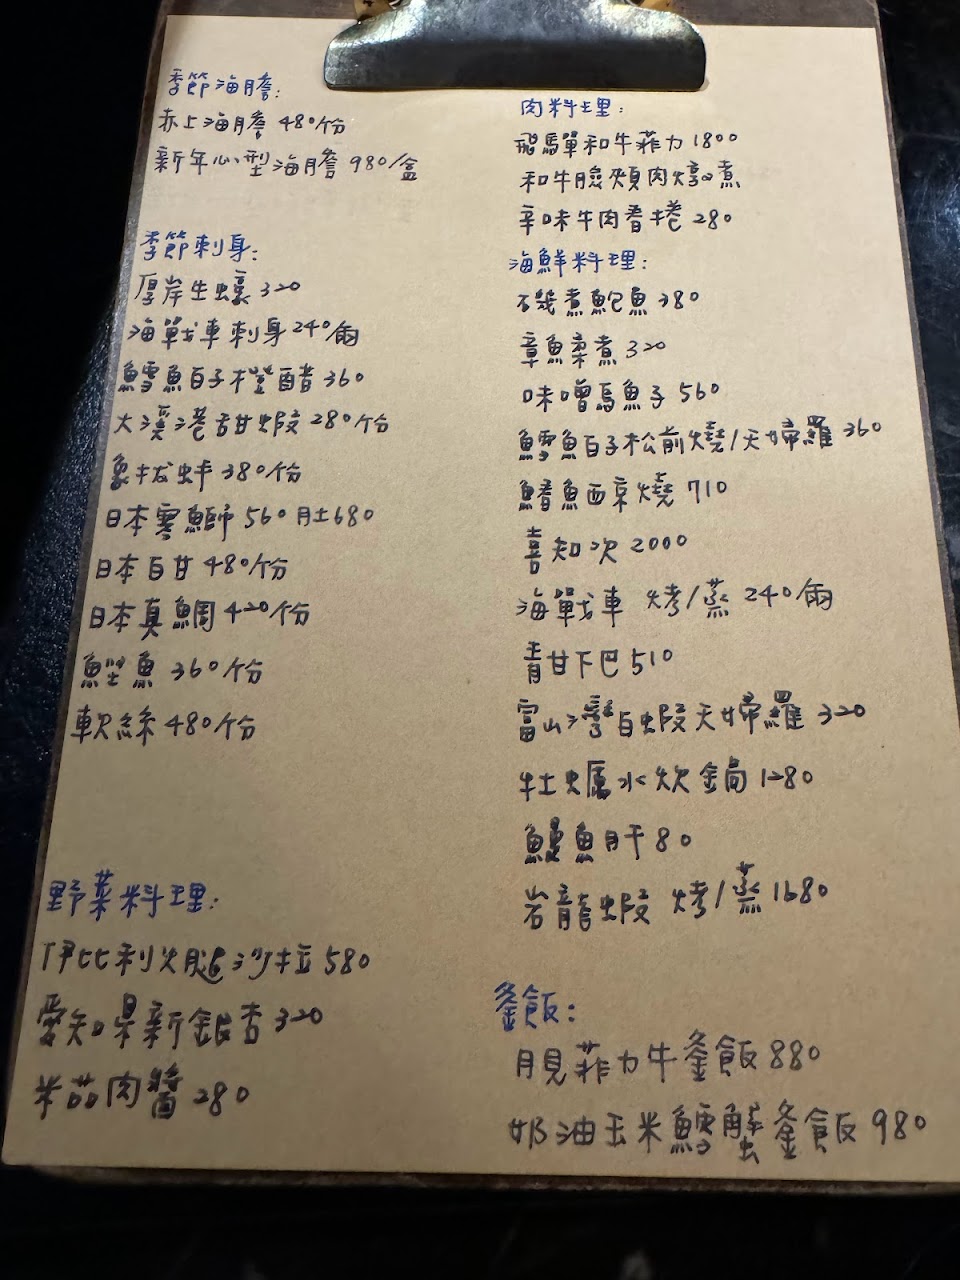 季節海膽:
赤上海膽 480份
新年心型海膽 980/盒
季節刺身:
厚岸生蠔 320
海戰車刺身 240/兩
鱈魚白子橙醋 360
大溪港甜蝦 280份
象拔蚌 380份
日本寒鰤 560 肚680
日本白甘 480份
日本真鯛 420份
鰹魚 360份
軟絲 480份
野菜料理:
伊比利火腿沙拉 580
愛知県新銀杏 320
米茄肉醬 280
肉料理:
飛驒和牛菲力 1800
和牛臉頰肉煮
辛味牛肉春捲 280
海鮮料理:
磯煮鮑魚 380
章魚柔煮 320
味噌烏魚子 560
鱈魚白子松前燒/天婦羅 360
鰆魚西京燒 710
喜知次 2000
海戰車 烤/蒸 240/兩
青甘下巴 510
富山灣白蝦天婦羅 320
牡蠣水炊鍋 1280
鰻魚肝 80
岩龍蝦 烤/蒸 1680
釜飯:
月見菲力牛釜飯 880
奶油玉米鱈蟹釜飯 980